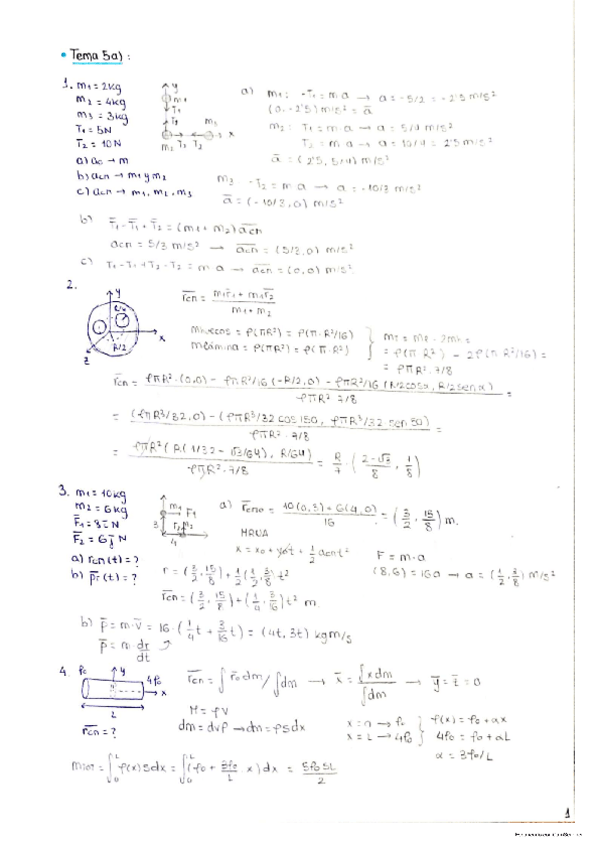 • Tema 5a) :
1. m1 = 2kg
m2 = 4kg
m3 = 3kg
T1 = 5N
T2 = 10N
a) a0 → m
b) acn → m1 y m2
c) acn → m1, m2, m3
y
m1
T1
T1
m3
x
m2 T2 T2
a) m1: -T1 = m a → a = -5/2 = -2'5 m/s²
(0, -2'5) m/s² = a
m2: T1 = m a → a = 5/4 m/s²
T2 = m a → a = 10/4 = 2'5 m/s²
a = (2'5, 5/4) m/s²
m3 -T2 = m a → a = -10/3 m/s²
a = (-10/3, 0) m/s²
b) T1 - T1 + T2 = (m1 + m2) acn
acn = 5/3 m/s² → acn = (5/3, 0) m/s²
c) T1 - T1 + T2 - T2 = m a → acn = (0,0) m/s²
2.
y
x
z
R/2
rcn = m1r1 + m2r2 / m1 + m2
mhuecos = ρ(πR²) = ρ(π·R²/16)
mlámina = ρ(πR²) = ρ(π·R²)
mT = mℓ - 2mh =
= ρ(πR²) - 2ρ(πR²/16) =
= ρπR²·7/8
rcn = ρπR²·(0,0) - ρπR²/16 (-R/2, 0) - ρπR²/16 (R/2cosα, R/2senα) / ρπR² 7/8 =
= (ρπR³/32, 0) - (ρπR³/32 cos 30, ρπR³/32 sen 30) / ρπR²·7/8 =
= ρπR²(R(1/32 - √3/64), R/64) / ρπR²·7/8 = R/7 (2-√3/8, 1/8)
3. m1 = 10kg
m2 = 6kg
F1 = 8i N
F2 = 6j N
a) rcn(t) = ?
b) pT(t) = ?
m1 F1
3
F2 m2
4
a) rcn0 = 10(0,3) + 6(4,0) / 16 = (3/2, 15/8) m.
MRUA
x = x0 + v0t + 1/2 acnt²
F = m·a
(8,6) = 16a → a = (1/2, 3/8) m/s²
r = (3/2, 15/8) + 1/2 (1/2, 3/8) t²
rcn = (3/2, 15/8) + (1/4, 3/16) t² m
b) p = m·v = 16·(1/4 t + 3/16 t) = (4t, 3t) kgm/s
p = m dr/dt
4. ρ0
y
4ρ0
x
L
rcn = ?
rcn = ∫ r0 dm / ∫dm → x = ∫xdm / ∫dm → y = z = 0
M = ρV
dm = dVρ → dm = ρSdx
x = 0 → ρ0
x = L → 4ρ0
ρ(x) = ρ0 + αx
4ρ0 = ρ0 + αL
α = 3ρ0/L
mTOT = ∫0L ρ(x) S dx = ∫0L (ρ0 + 3ρ0/L x) dx = 5ρ0SL/2
1